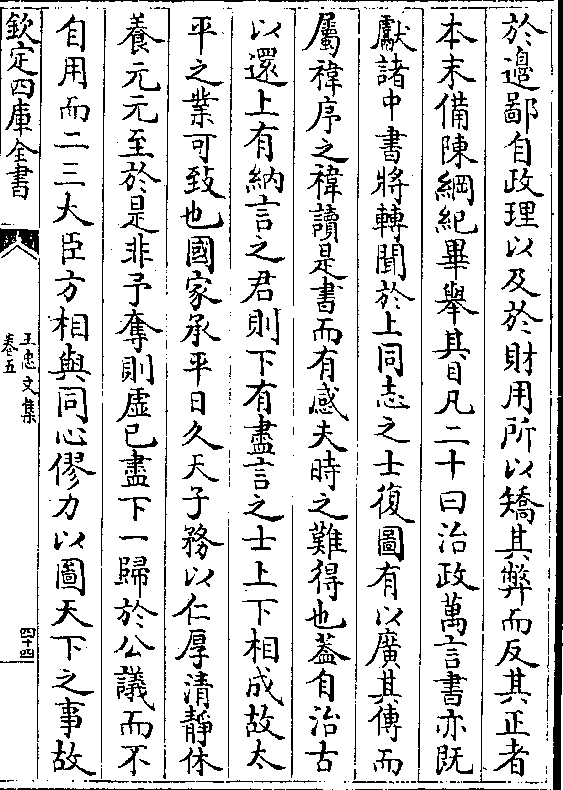 於邉鄙自政理以及於財用所以矯其弊而反其正者
本末備陳綱紀畢舉其目凡二十曰治政萬言書亦既
獻諸中書將轉聞於上同志之士復圖有以廣其傳而
屬禕序之禕讀是書而有感夫時之難得也蓋自治古
以還上有納言之君則下有盡言之士上下相成故太
平之業可致也國家承平日久天子務以仁厚清靜休
養元元至於是非予奪則虛已盡下一歸於公議而不
自用而二三大臣方相與同心僇力以圖天下之事故
欽定四庫全書
王忠文集
卷五
四十四